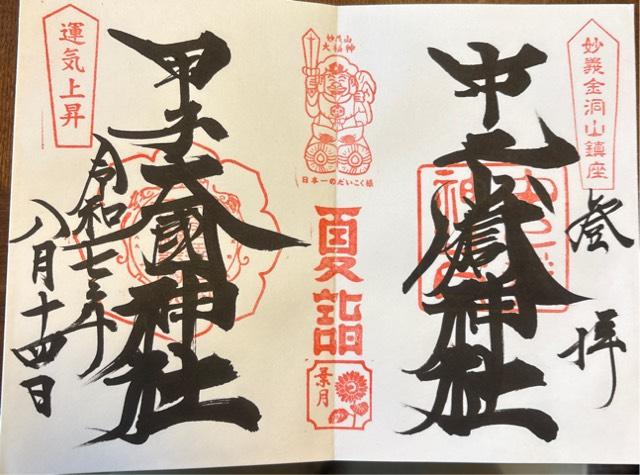 妙義金洞山鎮座
登拝
中之嶽神社
妙義山
大福神
日本一のだいこく様
夏詣
葉月
運気上昇
甲子大國神社
令和七年
八月十四日